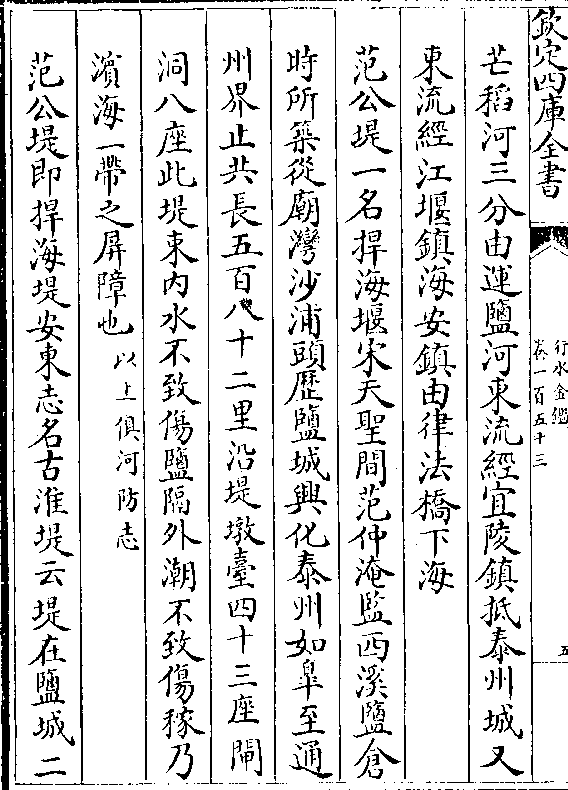 欽定四庫全書
行水金鑑
卷一百五十三
五
芒稻河三分由運鹽河東流經宜陵鎮抵泰州城又
東流經江堰鎮海安鎮由律法橋下海
范公堤一名捍海堰宋天聖間范仲淹監西溪鹽倉
時所築從廟灣沙浦頭歷鹽城興化泰州如臯至通
州界止共長五百八十二里沿堤墩臺四十三座閘
洞八座此堤東內水不致傷鹽隔外潮不致傷稼乃
濱海一帶之屏障也以上俱河防志
范公堤即捍海堤安東志名古淮堤云堤在鹽城二